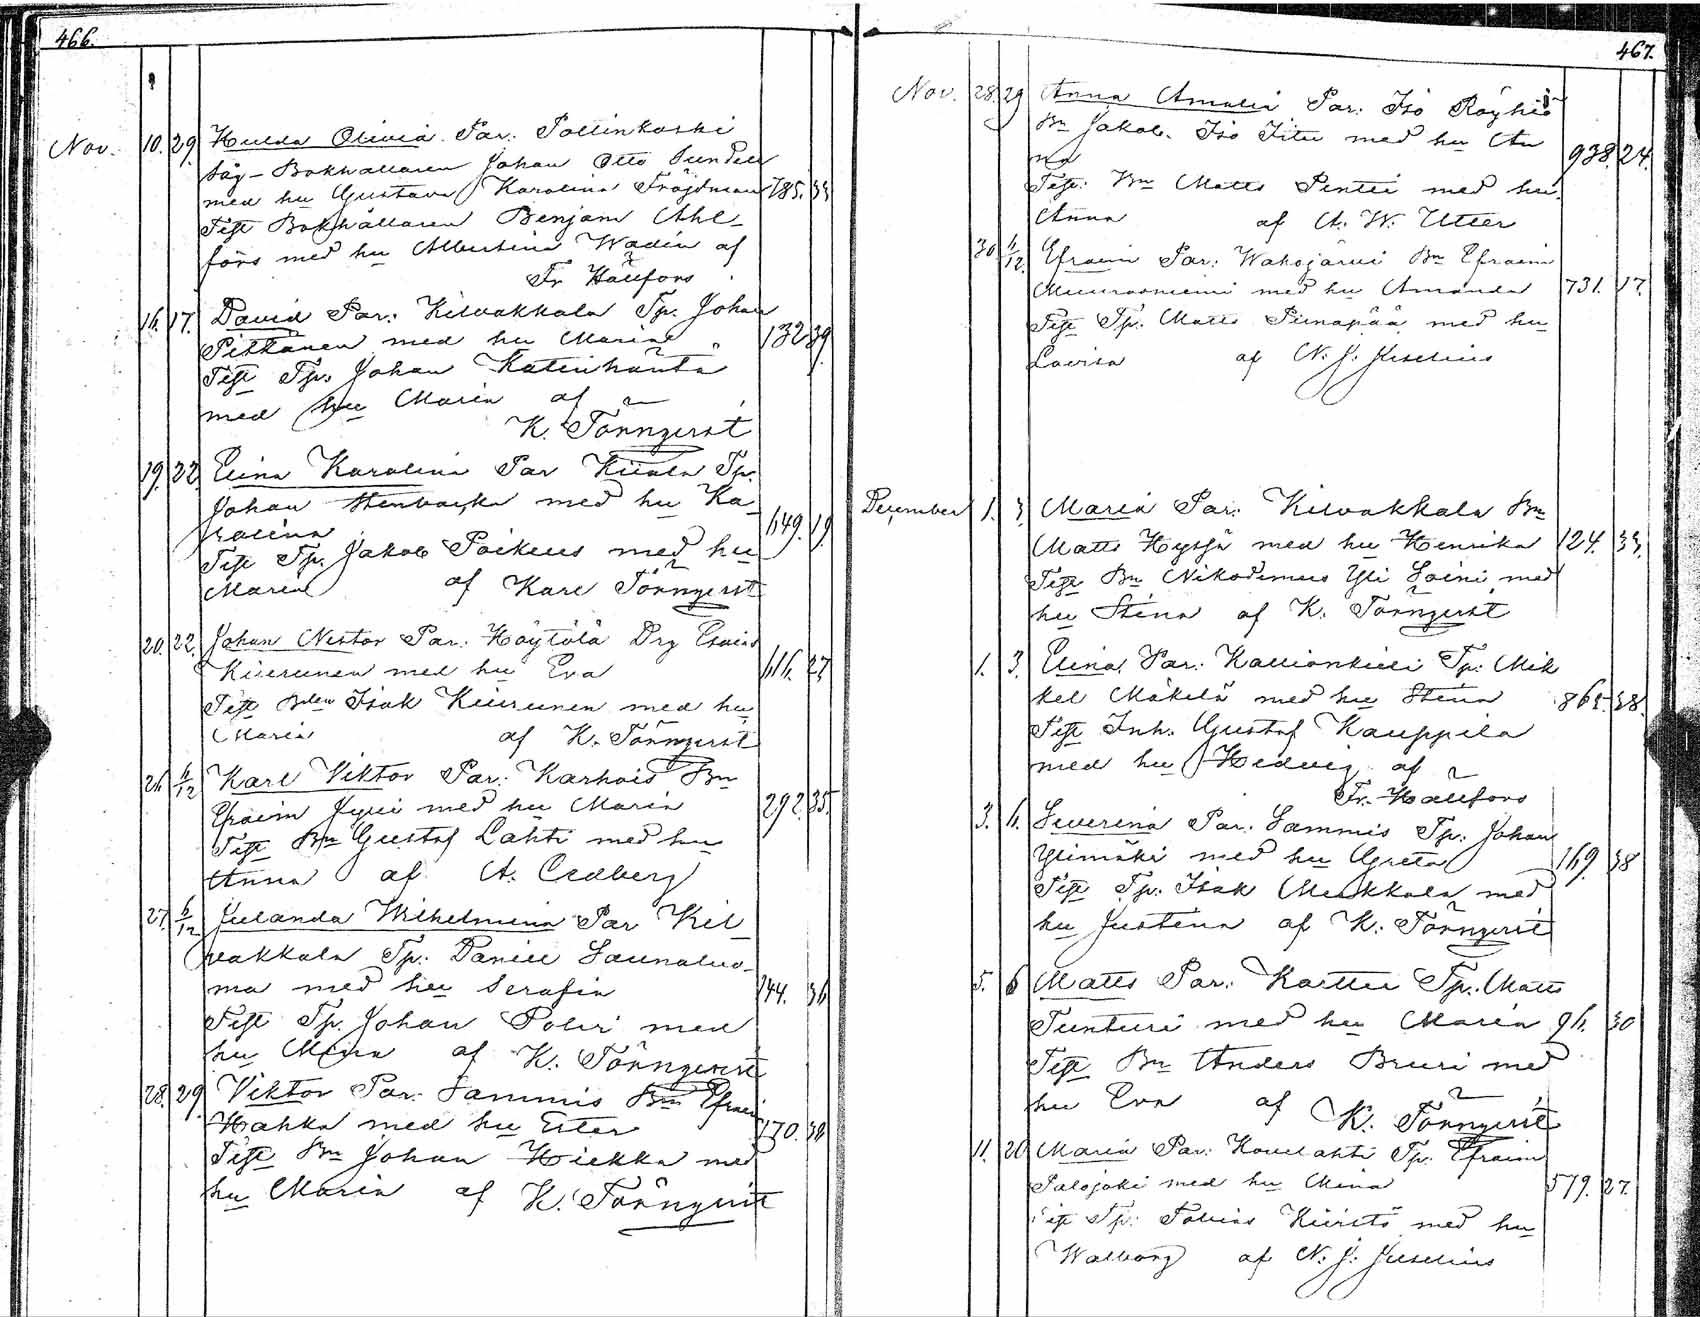 466.
Nov. 10. 29. Hulda Olivia. Par: Pollinkoski
Såg-Bokhållaren Johan Otto Sundell
med hu Gustava Karolina Fröjdman 785. 33
Test Bokhållaren Benjam Ahl-
fors med hu Albertina Wadén af
Fr. Hallfors
16. 17. David Par: Kilvakkala Tp. Johan
Pitkänen med hu Maria 132 39
Test Tp. Johan Katinhänta
med hu Maria af
K. Törnqvist
19. 22. Elina Karolina Par Kiiala Tp.
Johan Stenbacka med hu Ka-
rolina 649. 19.
Test Tp. Jakob Poikeus med hu
Maria af Karl Törnqvist
20. 22. Johan Nestor Par: Höytölä Drg Esaias
Kiierunen med hu Eva 616. 27
Test Isak Kiierunen med hu
Maria af K. Törnqvist
26. 6/12 Karl Viktor Par: Karhois Bn
Efraim Jyri med hu Maria 292. 35.
Test Bn Gustaf Lahti med hu
Anna af A. Cedberg
27. 6/12 Julanda Wilhelmina Par Kil-
vakkala Tp. Daniel Saunaluo-
ma med hu Serafia 144. 36
Test Tp. Johan Poleri med
hu Mina af K. Törnqvist
28. 29. Viktor Par: Sammis Bn Efraim
Hahka med hu Ester 170. 36
Test Bn Johan Hiekka med
hu Maria af K. Törnqvist
467.
Nov. 28. 29 Anna Amalia Par: Iso Röyhiö
Bn Jakob. Iso Iitu med hu An
na 938. 24.
Test: Bn Matts Pentti med hu
Anna af A. W. Utter
30. 6/12. Efraim Par: Wahojärvi Bn Efraim
Muurasniemi med hu Amanda 731. 17.
Test Tp. Matts Piinapää med hu
Lovisa af N. J. Juselius
December 1. 3. Maria Par: Kilvakkala Bn
Matts Hyssä med hu Henrika 124. 33.
Test Bn Nikodemus Yli Soini med
hu Stina af K. Törnqvist
1. 3. Elina Par: Kallionkieli Tp. Mik
kel Mäkelä med hu Stina 865. 38.
Test Inh. Gustaf Kauppila
med hu Hedvig af
Fr. Hallfors
3. 6. Severina Par: Sammis Tp. Johan
Ylimäki med hu Greta 169. 38
Test Tp. Isak Mukkala med
hu Justina af K. Törnqvist
5. 6 Matts Par: Karttu Tp. Matts
Tunturi med hu Maria 96. 30
Test Bn Anders Bruri med
hu Eva af K. Törnqvist
11. 20 Maria Par: Koulahti Tp. Efraim
Palojoki med hu Mina 579. 27.
Test Tp. Tobias Kiiristö med hu
Walborg af N. J. Juselius